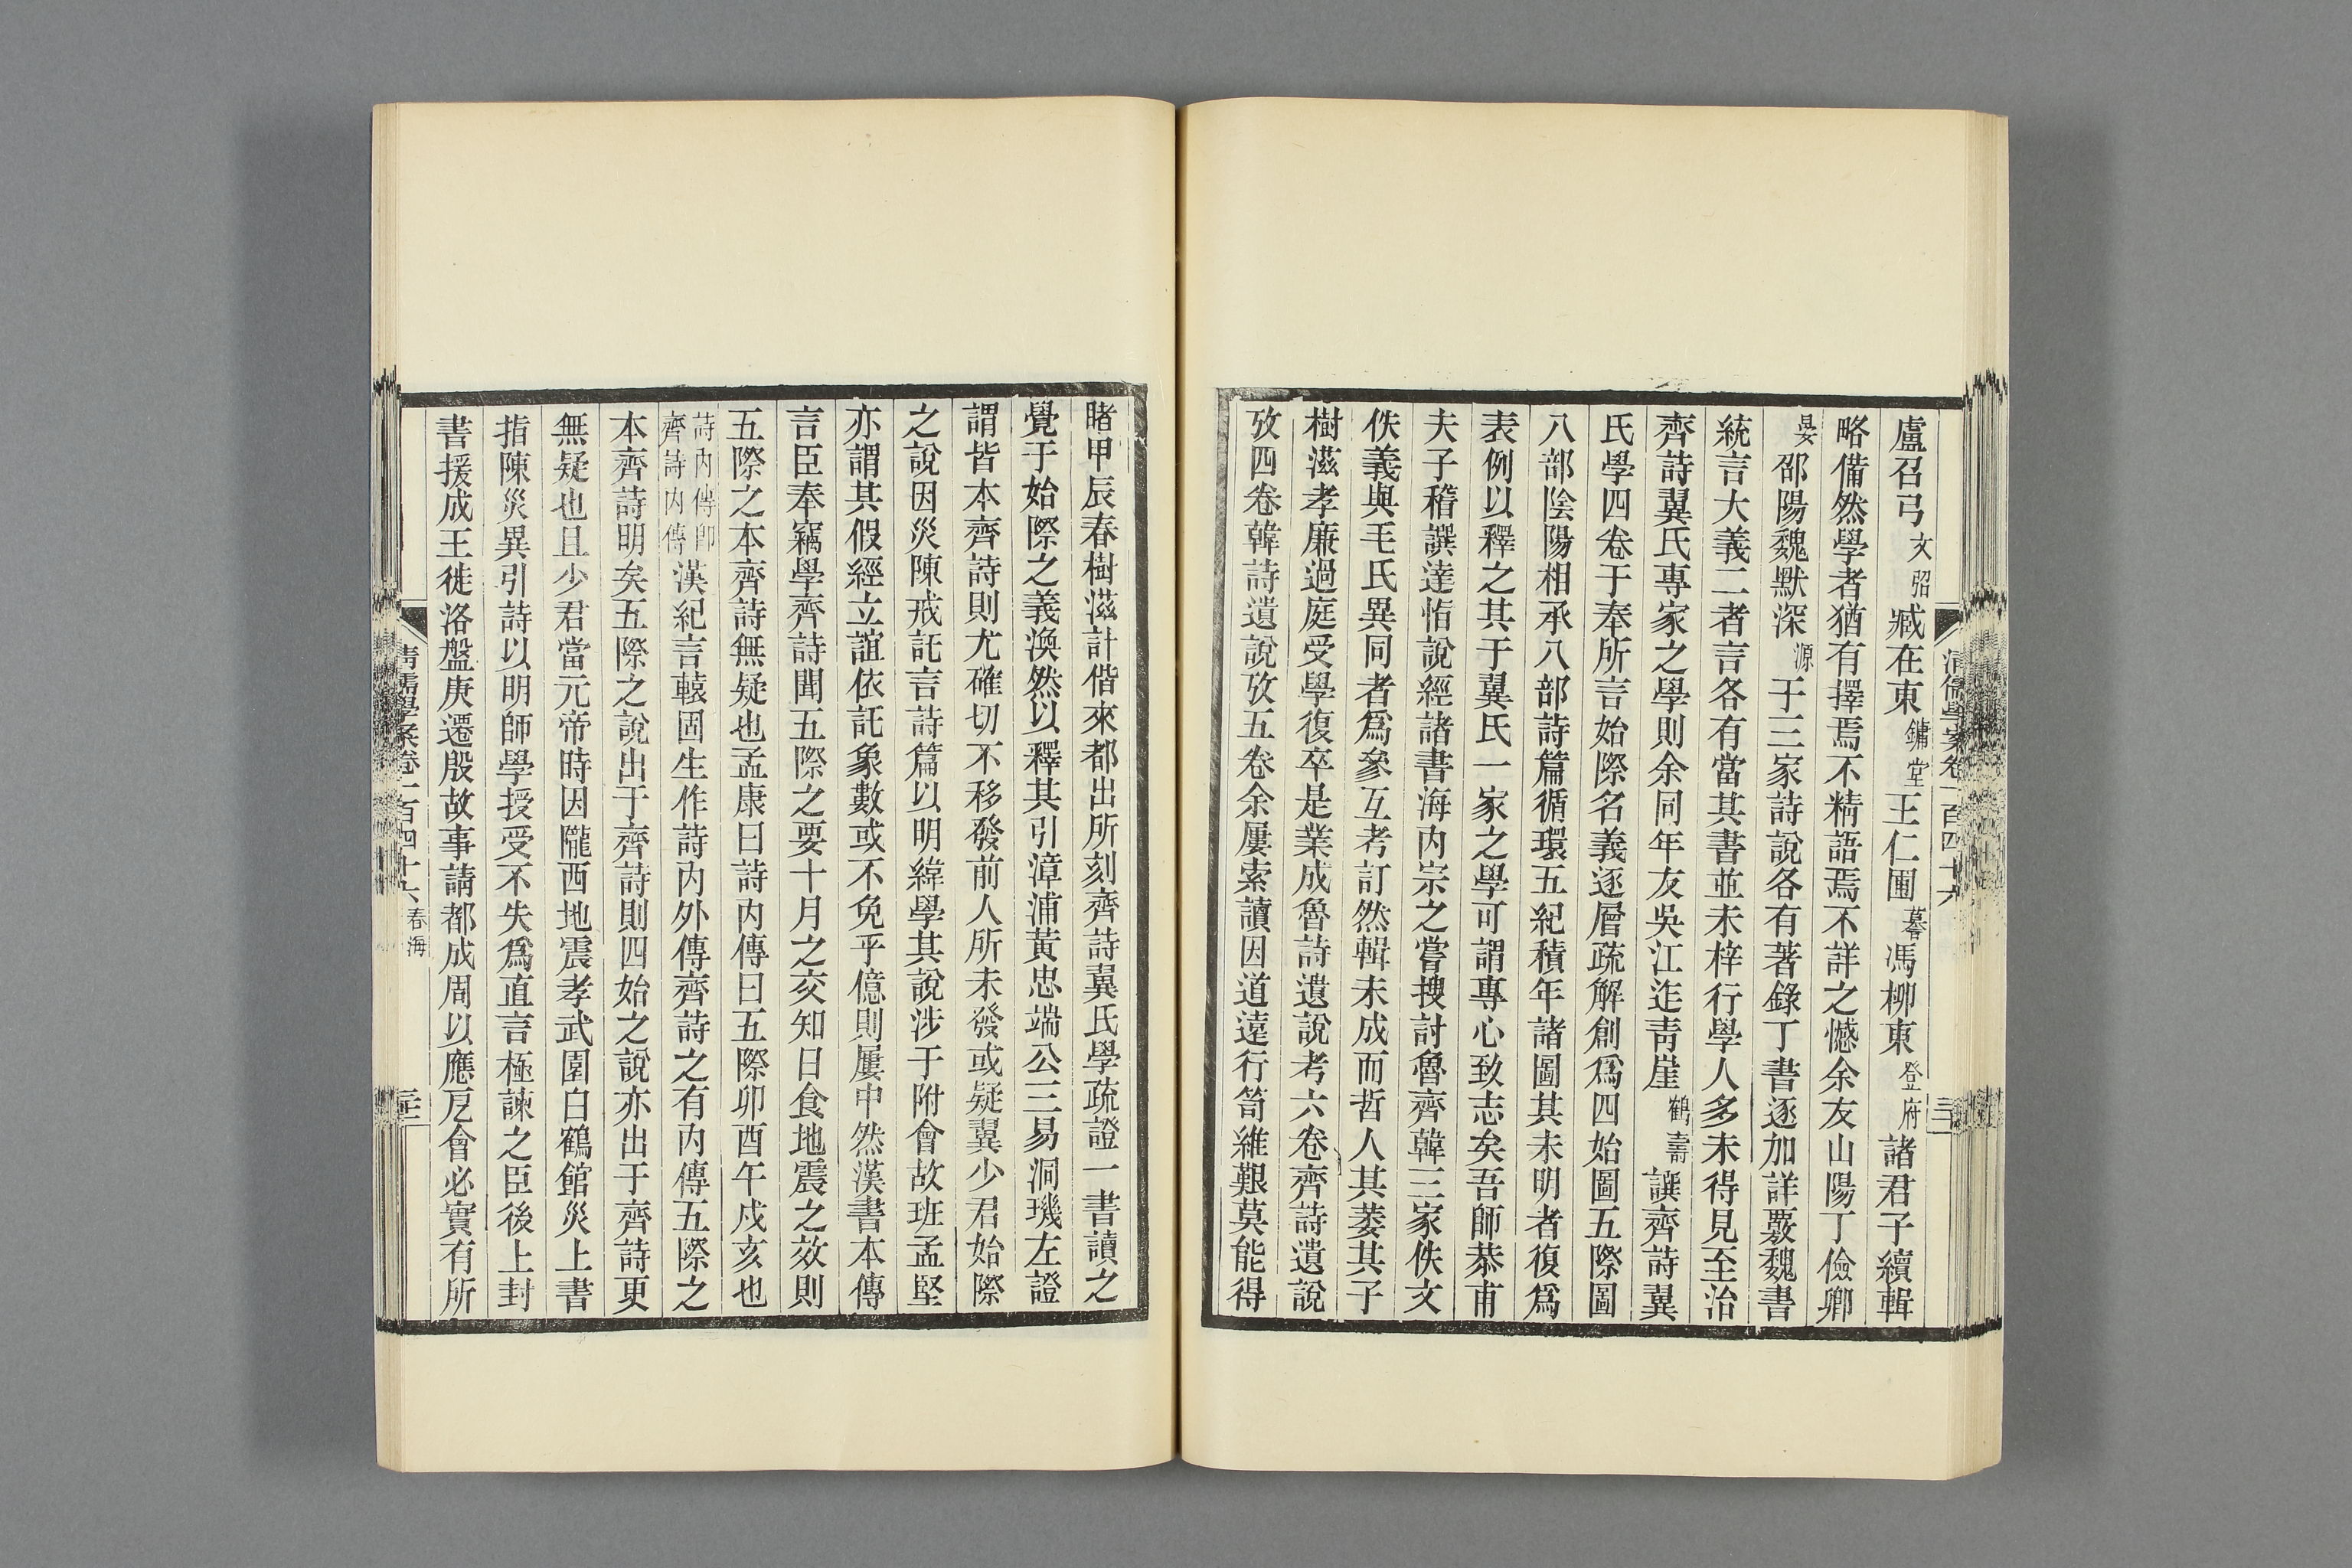 盧召弓文弨臧在東鏞堂王仁圃謩馮柳東登府諸君子續輯
略備然學者猶有擇焉不精語焉不詳之憾余友山陽丁儉卿
晏邵陽魏默深源于三家詩說各有著錄丁書逐加詳覈魏書
統言大義二者言各有當其書並未梓行學人多未得見至治
齊詩翼氏專家之學則余同年友吳江迮靑崖鶴壽譔齊詩翼
氏學四卷于奉所言始際名義逐層疏解創爲四始圖五際圖
八部陰陽相承八部詩篇循環五紀積年諸圖其未明者復爲
表例以釋之其于翼氏一家之學可謂專心致志矣吾師恭甫
夫子稽譔達恉說經諸書海內宗之嘗搜討魯齊韓三家佚文
佚義與毛氏異同者爲參互考訂然輯未成而哲人其萎其子
樹滋孝廉過庭受學復卒是業成魯詩遺說考六卷齊詩遺說
攷四卷韓詩遺說攷五卷余屢索讀因道遠行笥維艱莫能得
清儒學案卷一百四十六
睹甲辰春樹滋計偕來都出所刻齊詩翼氏學疏證一書讀之
覺于始際之義渙然以釋其引漳浦黃忠端公三易洞璣左證
謂皆本齊詩則尤確切不移發前人所未發或疑翼少君始際
之說因災陳戒託言詩篇以明緯學其說涉于附會故班孟堅
亦謂其假經立誼依託象數或不免乎億則屢中然漢書本傳
言臣奉竊學齊詩聞五際之要十月之交知日食地震之效則
五際之本齊詩無疑也孟康曰詩內傳曰五際卯酉午戌亥也
詩內傳卽齊詩內傳漢紀言轅固生作詩內外傳齊詩之有內傳五際之
本齊詩明矣五際之說出于齊詩則四始之說亦出于齊詩更
無疑也且少君當元帝時因隴西地震孝武園白鶴館災上書
指陳災異引詩以明師學授受不失爲直言極諫之臣後上封
書援成王徙洛盤庚遷殷故事請都成周以應戹會必實有所
清儒學案卷一百四十六 春海